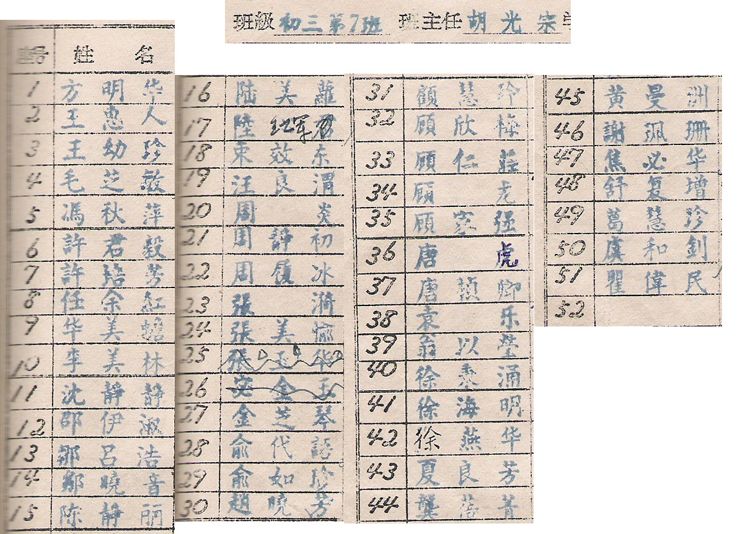 班級 初三第7班 班主任 胡光宗
姓 名
1 方明华
2 王惠人
3 王幼珍
4 毛芝敏
5 馮秋萍
6 許君毅
7 許培芳
8 任余紅
9 华美蟾
10 李美林
11 沈靜靜
12 邵伊淑
13 鄒呂浩
14 鄒曉音
15 陈靜丽
16 陆美蘿
17 陸红军
18 束效东
19 汪良渭
20 周炎
21 周靜初
22 周履冰
23 張漪
24 張美愉
25 張玉华
26 安金玉
27 金芝琴
28 俞代
29 俞如珍
30 趙曉芳
31 顧慧玲
32 顧欣梅
33 顧仁莊
34 顧尤
35 顧家强
36 唐虎
37 唐頴卿
38 袁乐
39 翁以瑩
40 徐秉涌
41 徐海明
42 徐燕华
43 夏良芳
44 龔蓓菁
45 黄曼洲
46 謝珮珊
47 焦必华
48 舒复增
49 葛慧珍
50 虞和釗
51 瞿偉民
52